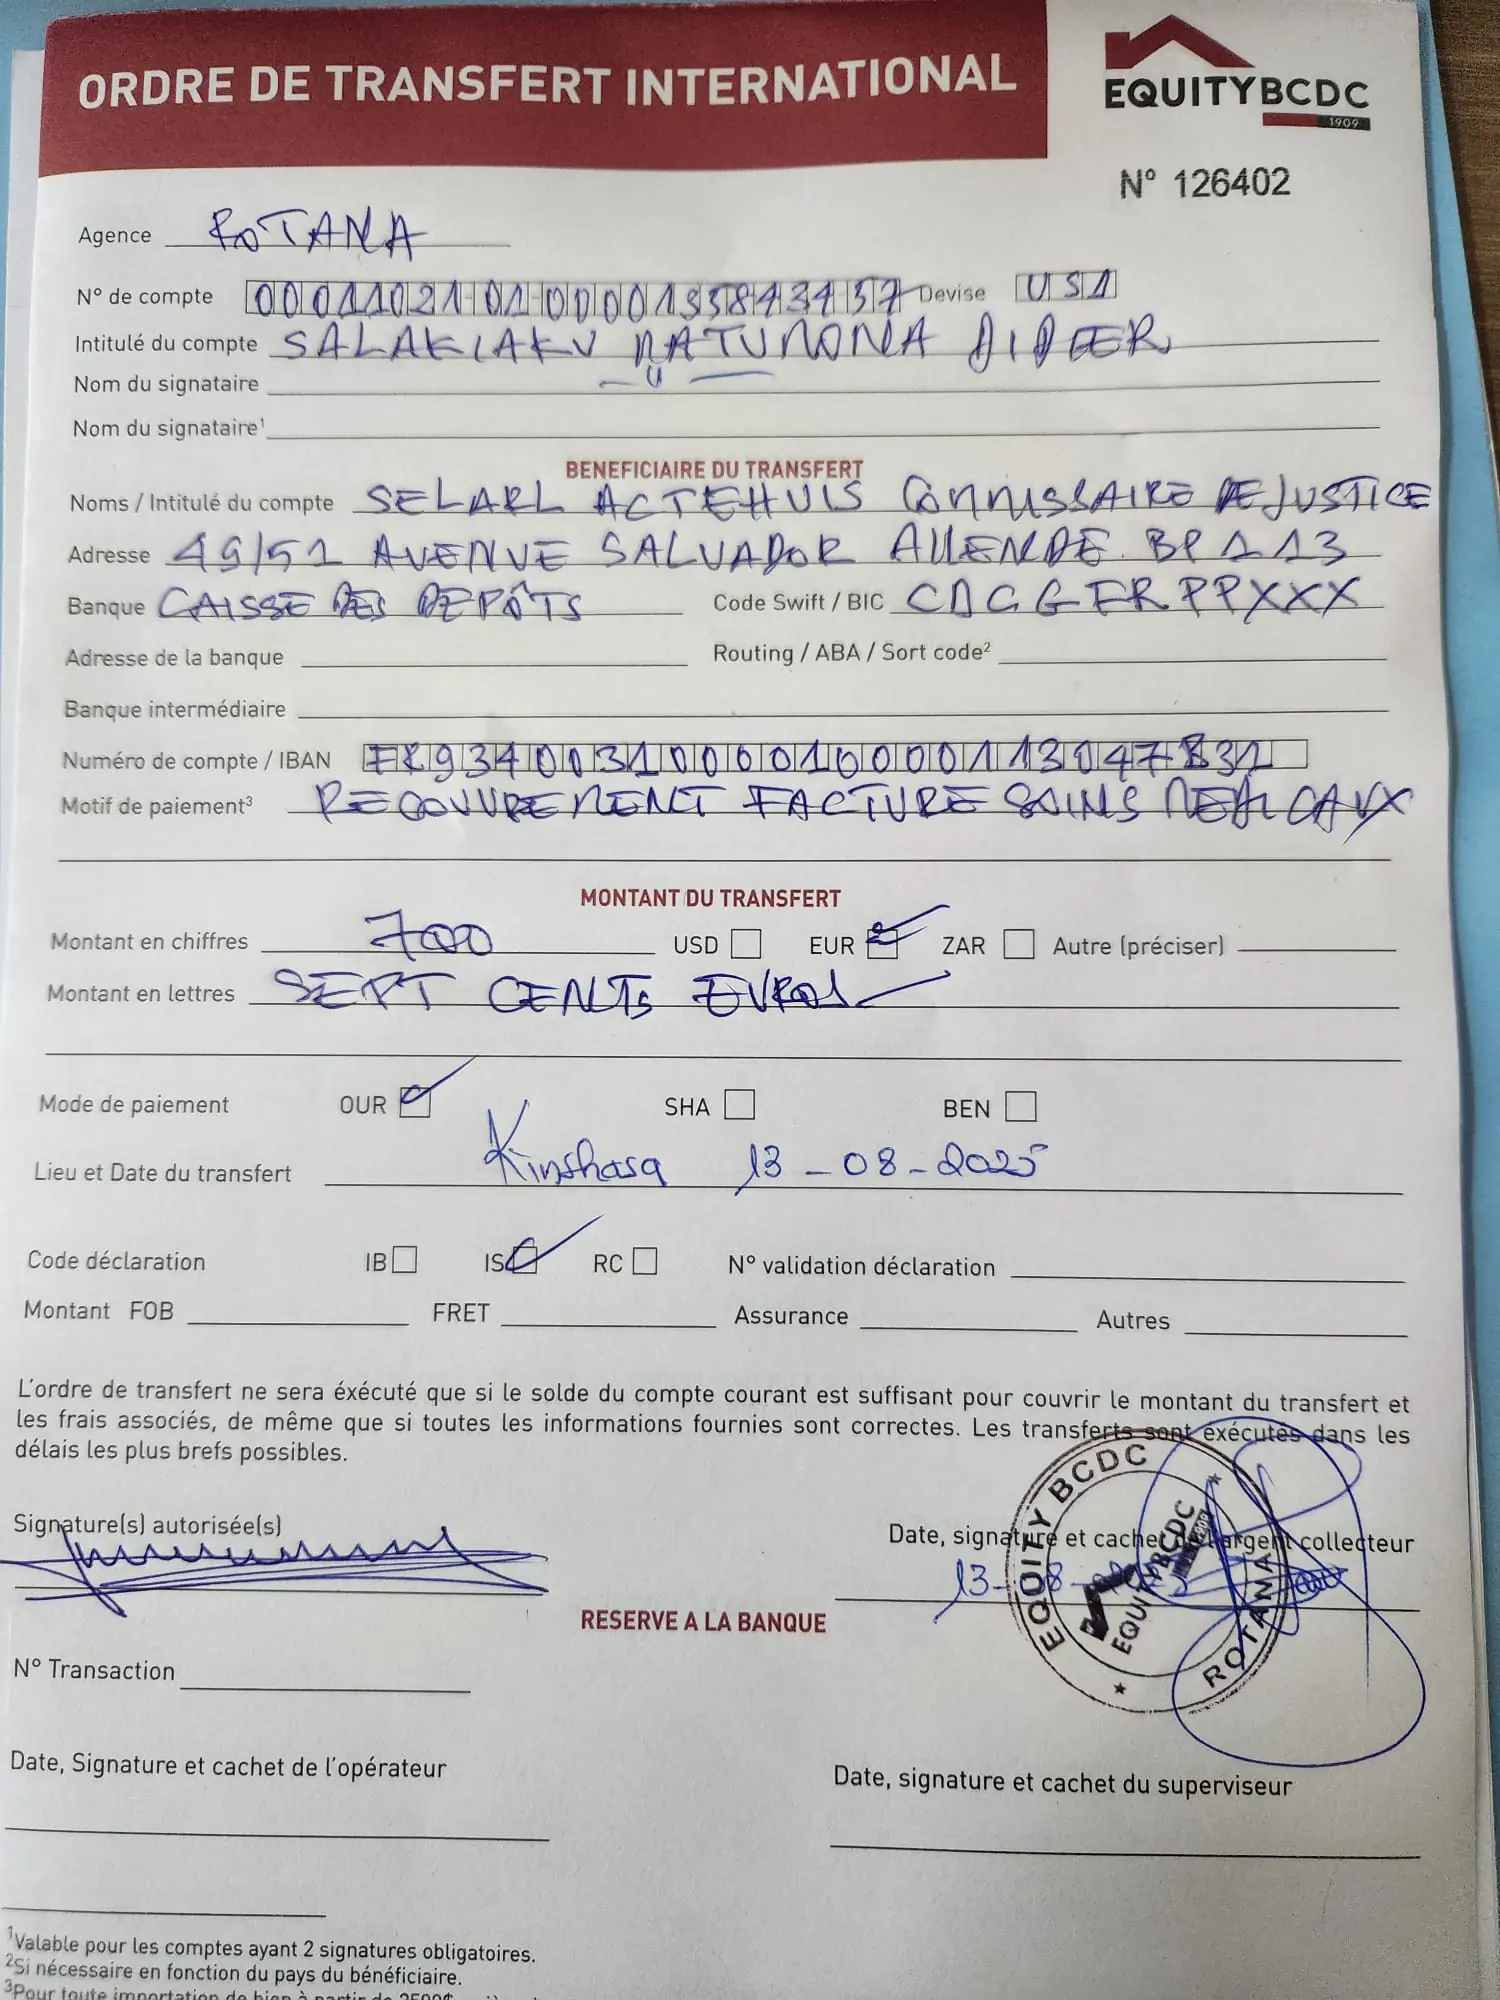 ORDRE DE TRANSFERT INTERNATIONAL
EQUITYBCDC
1909
N° 126402
Agence ROTANA
N° de compte 00011021-01-00001358434-57 Devise USD
Intitulé du compte SALAKIAKU MATUMONA DIDIER
Nom du signataire
Nom du signataire¹
BENEFICIAIRE DU TRANSFERT
Noms / Intitulé du compte SELARL ACTEHUIS COMMISSAIRE DE JUSTICE
Adresse 49/51 AVENUE SALVADOR ALLENDE BP 113
Banque CAISSE DES DEPÔTS Code Swift / BIC CDCGFRPPXXX
Adresse de la banque Routing / ABA / Sort code²
Banque intermédiaire
Numéro de compte / IBAN
Motif de paiement³ RECOUVREMENT FACTURE SOINS MEDICAUX
MONTANT DU TRANSFERT
Montant en chiffres 700 USD EUR ZAR Autre (préciser)
Montant en lettres SEPT CENTS EUROS
Mode de paiement OUR SHA BEN
Lieu et Date du transfert Kinshasa 13-08-2025
Code déclaration IB IS RC N° validation déclaration
Montant FOB FRET Assurance Autres
L'ordre de transfert ne sera éxécuté que si le solde du compte courant est suffisant pour couvrir le montant du transfert et
les frais associés, de même que si toutes les informations fournies sont correctes. Les transferts sont exécutés dans les
délais les plus brefs possibles.
Signature(s) autorisée(s)
Date, signature et cachet de l'argent collecteur
13-08-
EQUITY BCDC
EQUITYBCDC
ROTANA
RESERVE A LA BANQUE
N° Transaction
Date, Signature et cachet de l'opérateur
Date, signature et cachet du superviseur
¹Valable pour les comptes ayant 2 signatures obligatoires.
²Si nécessaire en fonction du pays du bénéficiaire.
³Pour toute importation de bien à partir de 2500$